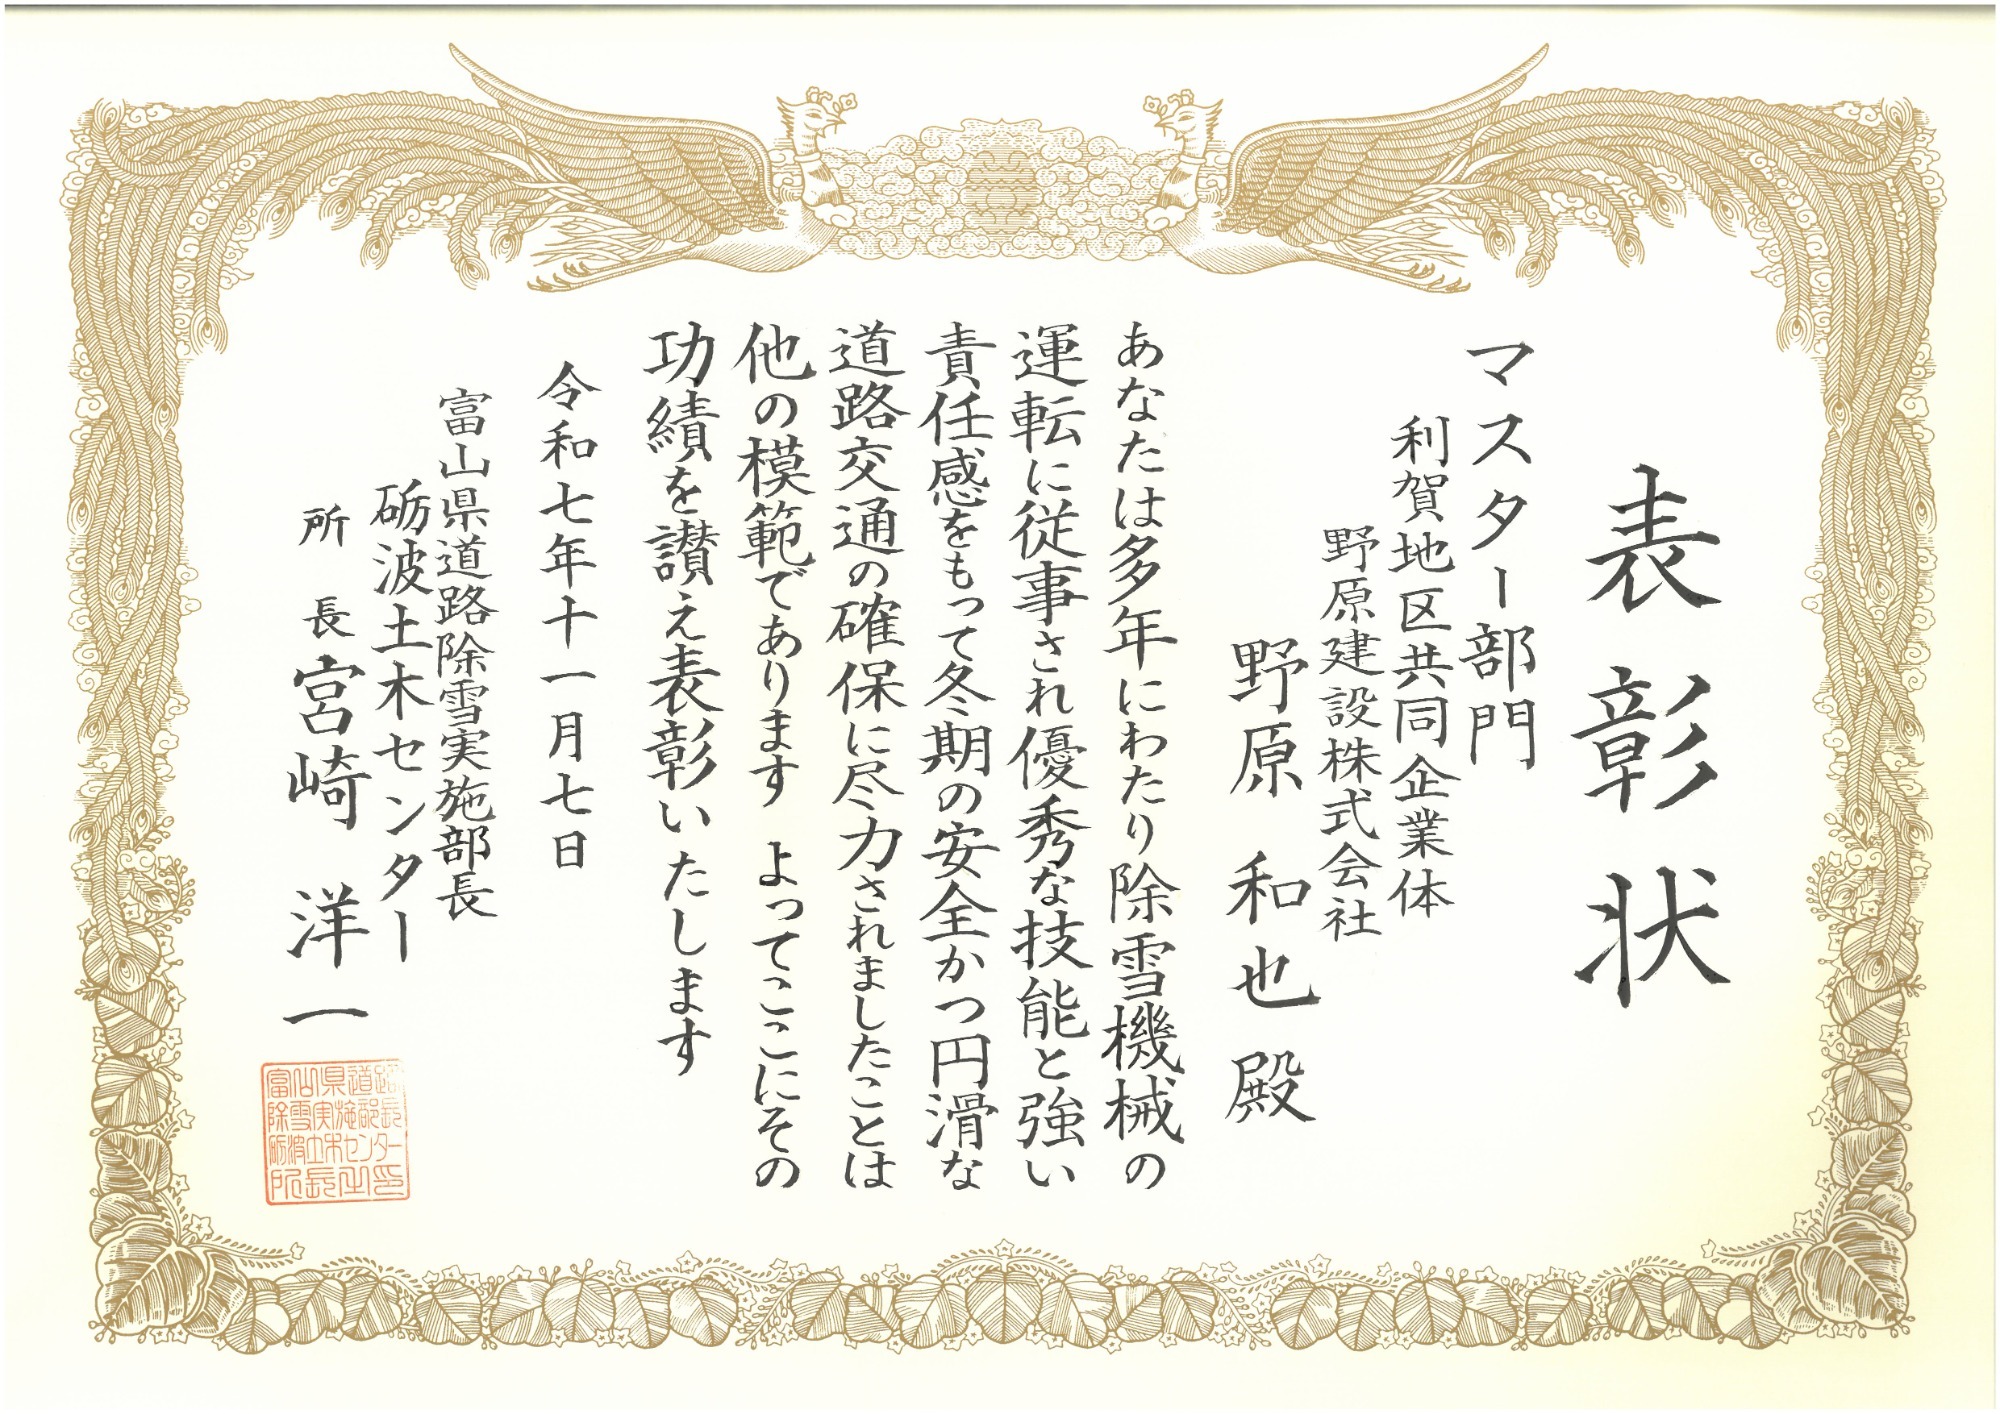 表彰状
マスター部門
利賀地区共同企業体
野原建設株式会社
野原和也殿
あなたは多年にわたり除雪機械の
運転に従事され優秀な技能と強い
責任感をもって冬期の安全かつ円滑な
道路交通の確保に尽力されましたことは
他の模範であります よってここにその
功績を讃え表彰いたします
令和七年十一月七日
富山県道路除雪実施部長
砺波土木センター
所長 宮崎洋一
富山県道路
除雪実施部長
砺波土木センター
所長之印